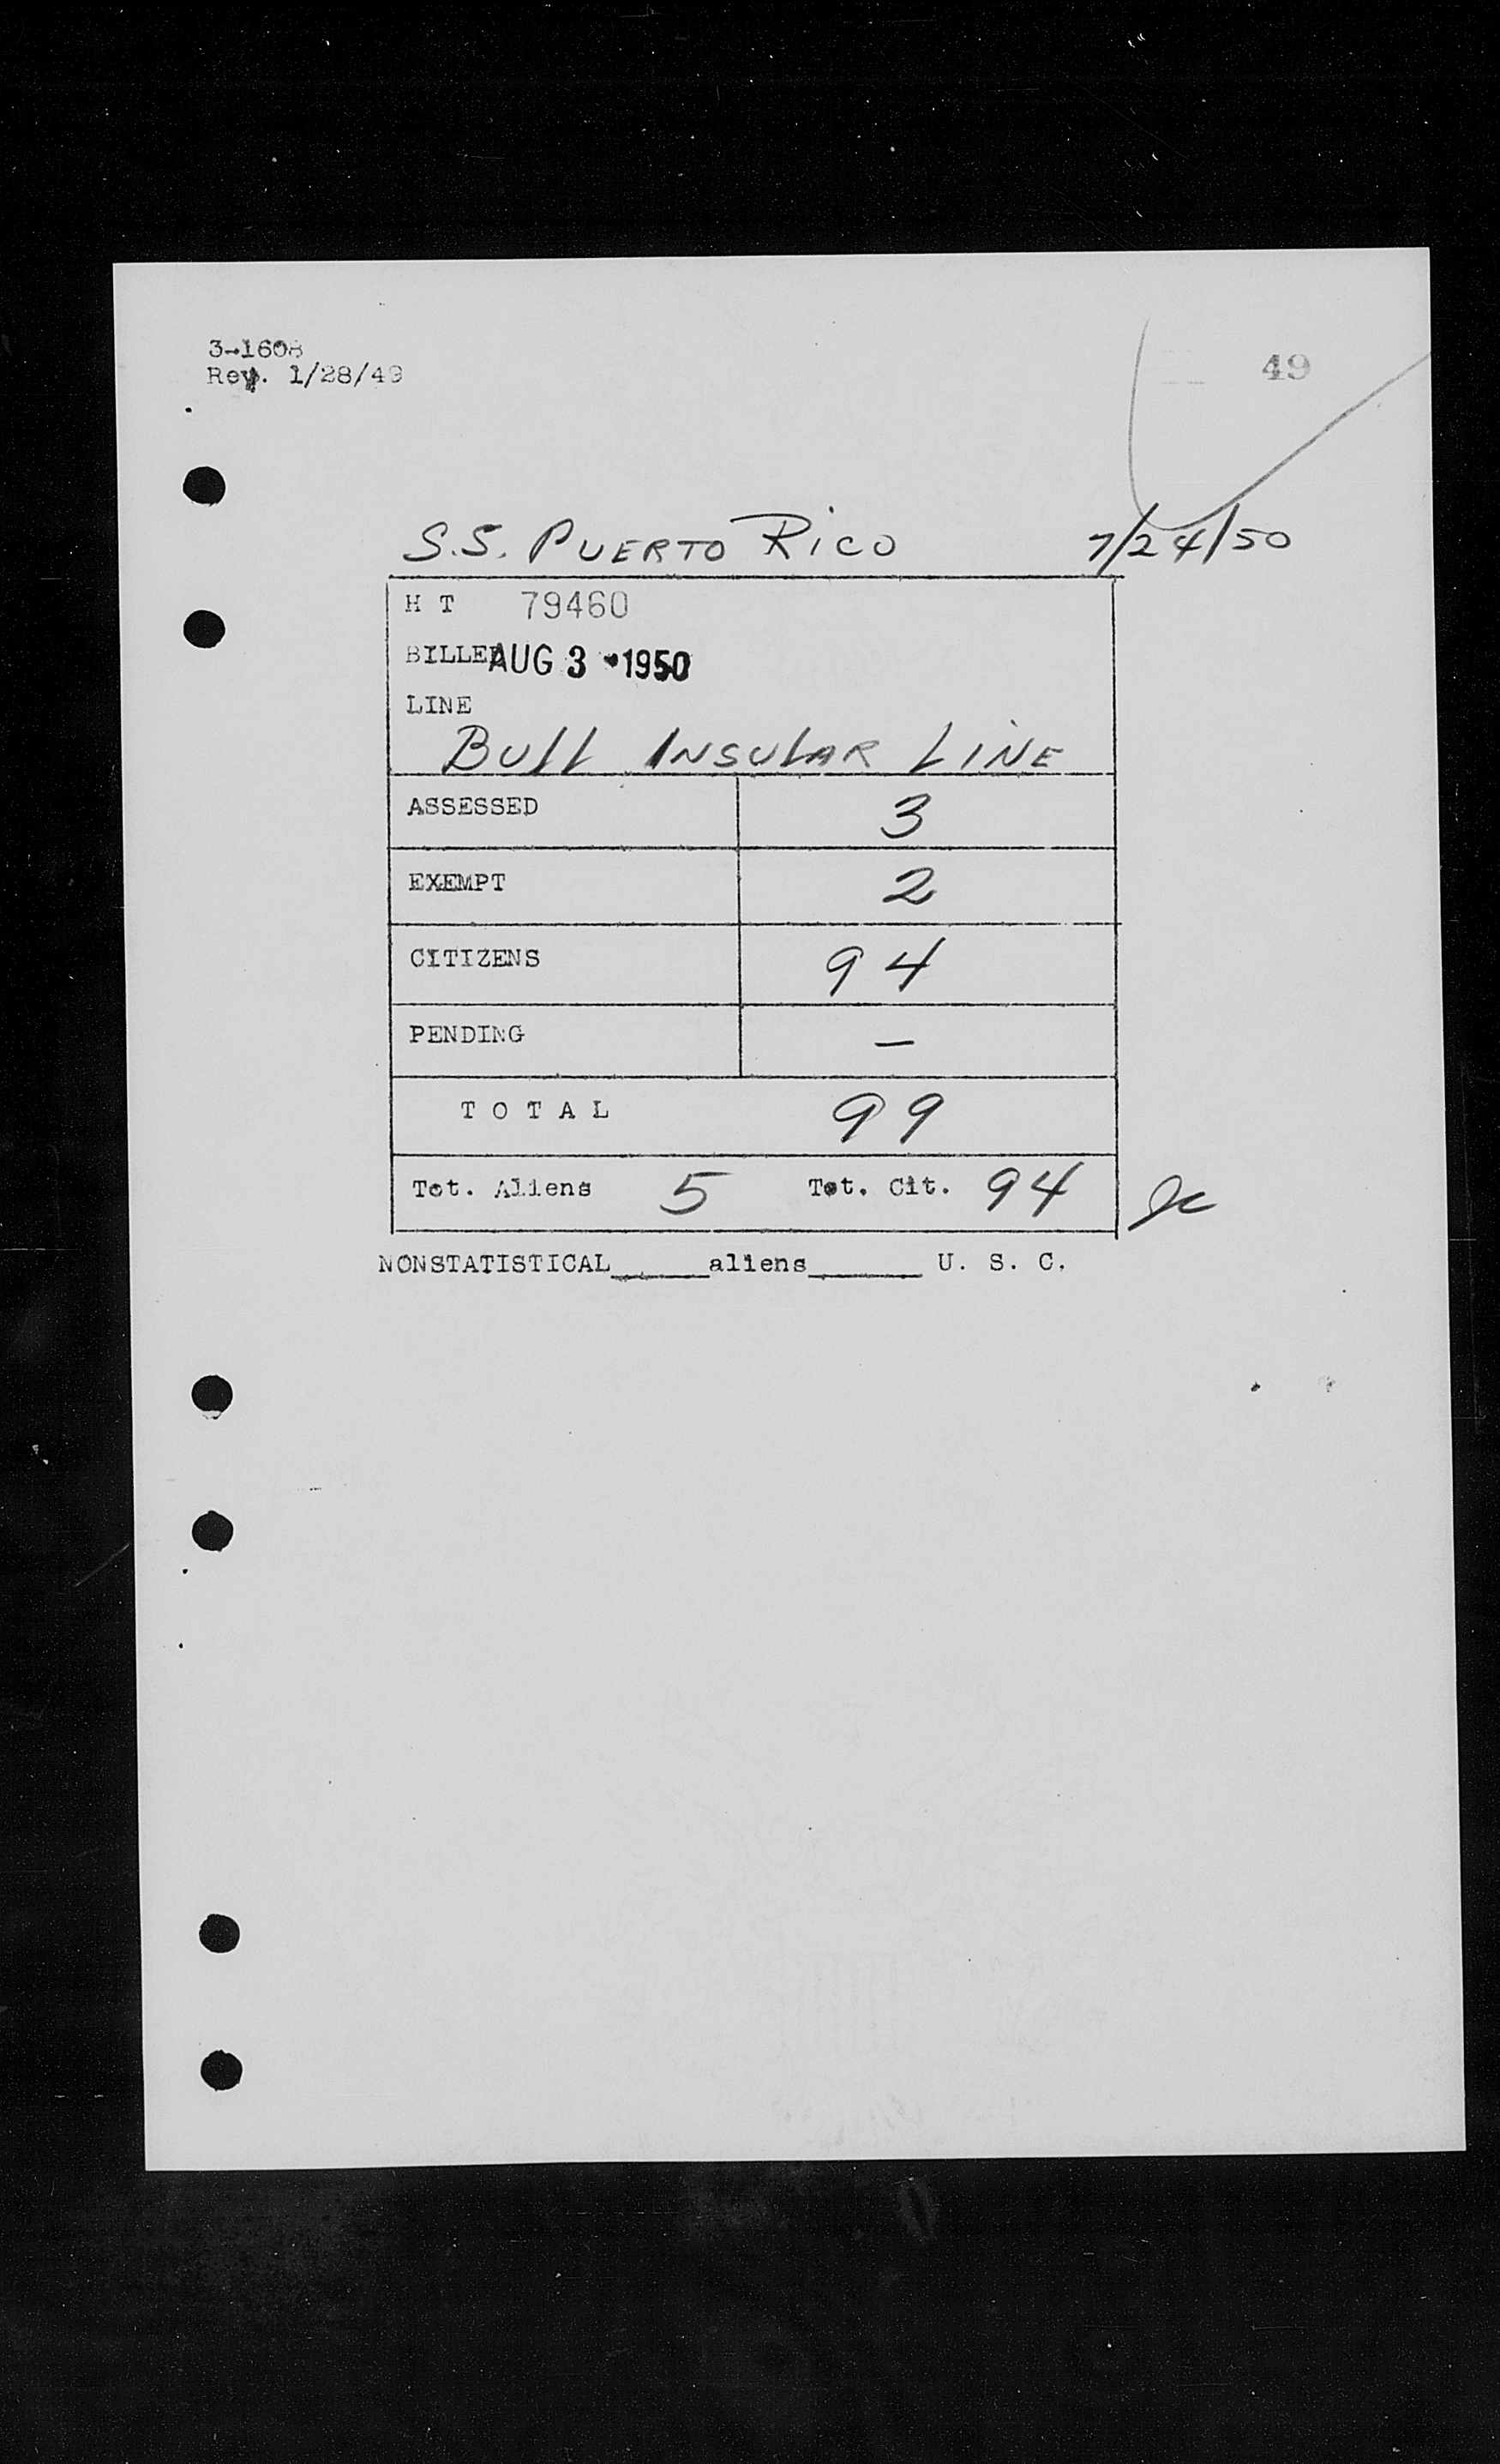 3-1608
Rev. 1/28/49
49
S.S. PUERTO RICO 7/24/50
H T 79460
BILLED AUG 3 - 1950
LINE
BULL INSULAR LINE
ASSESSED 3
EXEMPT 2
CITIZENS 94
PENDING —
T O T A L 99
Tot. Aliens 5 Tot. Cit. 94
NONSTATISTICAL______aliens_______ U. S. C.